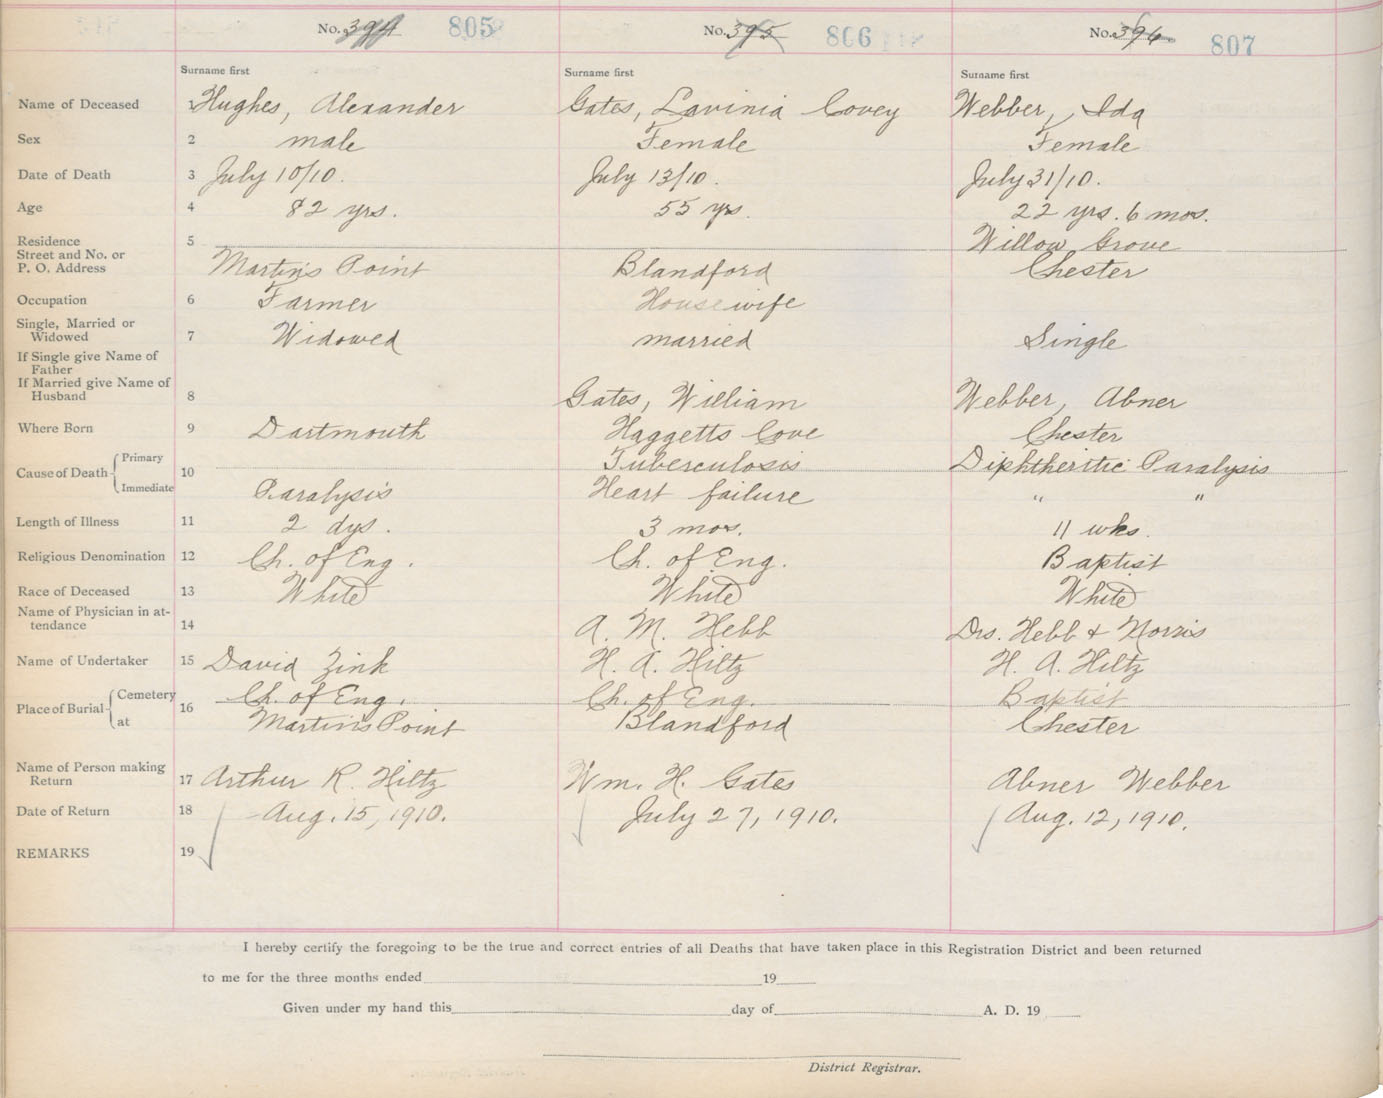 No. 394 805 No. 395 806 No. 396 807
Surname first Surname first Surname first
Name of Deceased 1 Hughes, Alexander Gates, Lavinia Covey Webber, Ida
Sex 2 male Female Female
Date of Death 3 July 10/10. July 13/10. July 31/10.
Age 4 82 yrs. 55 yrs. 22 yrs. 6 mos.
Residence 5 Willow Grove
Street and No. or
P. O. Address Martin's Point Blandford Chester
Occupation 6 Farmer Housewife
Single, Married or
Widowed 7 Widowed married Single
If Single give Name of
Father
If Married give Name of
Husband 8 Gates, William Webber, Abner
Where Born 9 Dartmouth Haggetts Cove Chester
Cause of Death Primary 10 Tuberculosis Diphtheritic Paralysis
Immediate Paralysis Heart failure " "
Length of Illness 11 2 dys. 3 mos. 11 wks.
Religious Denomination 12 Ch. of Eng. Ch. of Eng. Baptist
Race of Deceased 13 White White White
Name of Physician in at-
tendance 14 A. M. Hebb Drs. Hebb & Morris
Name of Undertaker 15 David Zink H. A. Hiltz H. A. Hiltz
Place of Burial Cemetery 16 Ch. of Eng. Ch. of Eng. Baptist
at Martin's Point Blandford Chester
Name of Person making
Return 17 Arthur R. Hiltz Wm. H. Gates Abner Webber
Date of Return 18 Aug. 15, 1910. July 27, 1910. Aug. 12, 1910.
REMARKS 19
I hereby certify the foregoing to be the true and correct entries of all Deaths that have taken place in this Registration District and been returned
to me for the three months ended 19
Given under my hand this day of A. D. 19
District Registrar.